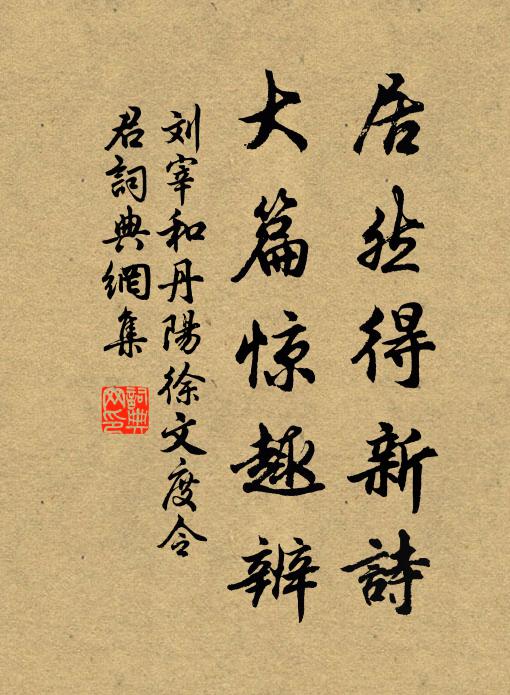 居然得新詩
大篇惊趣辨
刘宰和丹陽徐文度令
君詞典網集
詞典網印